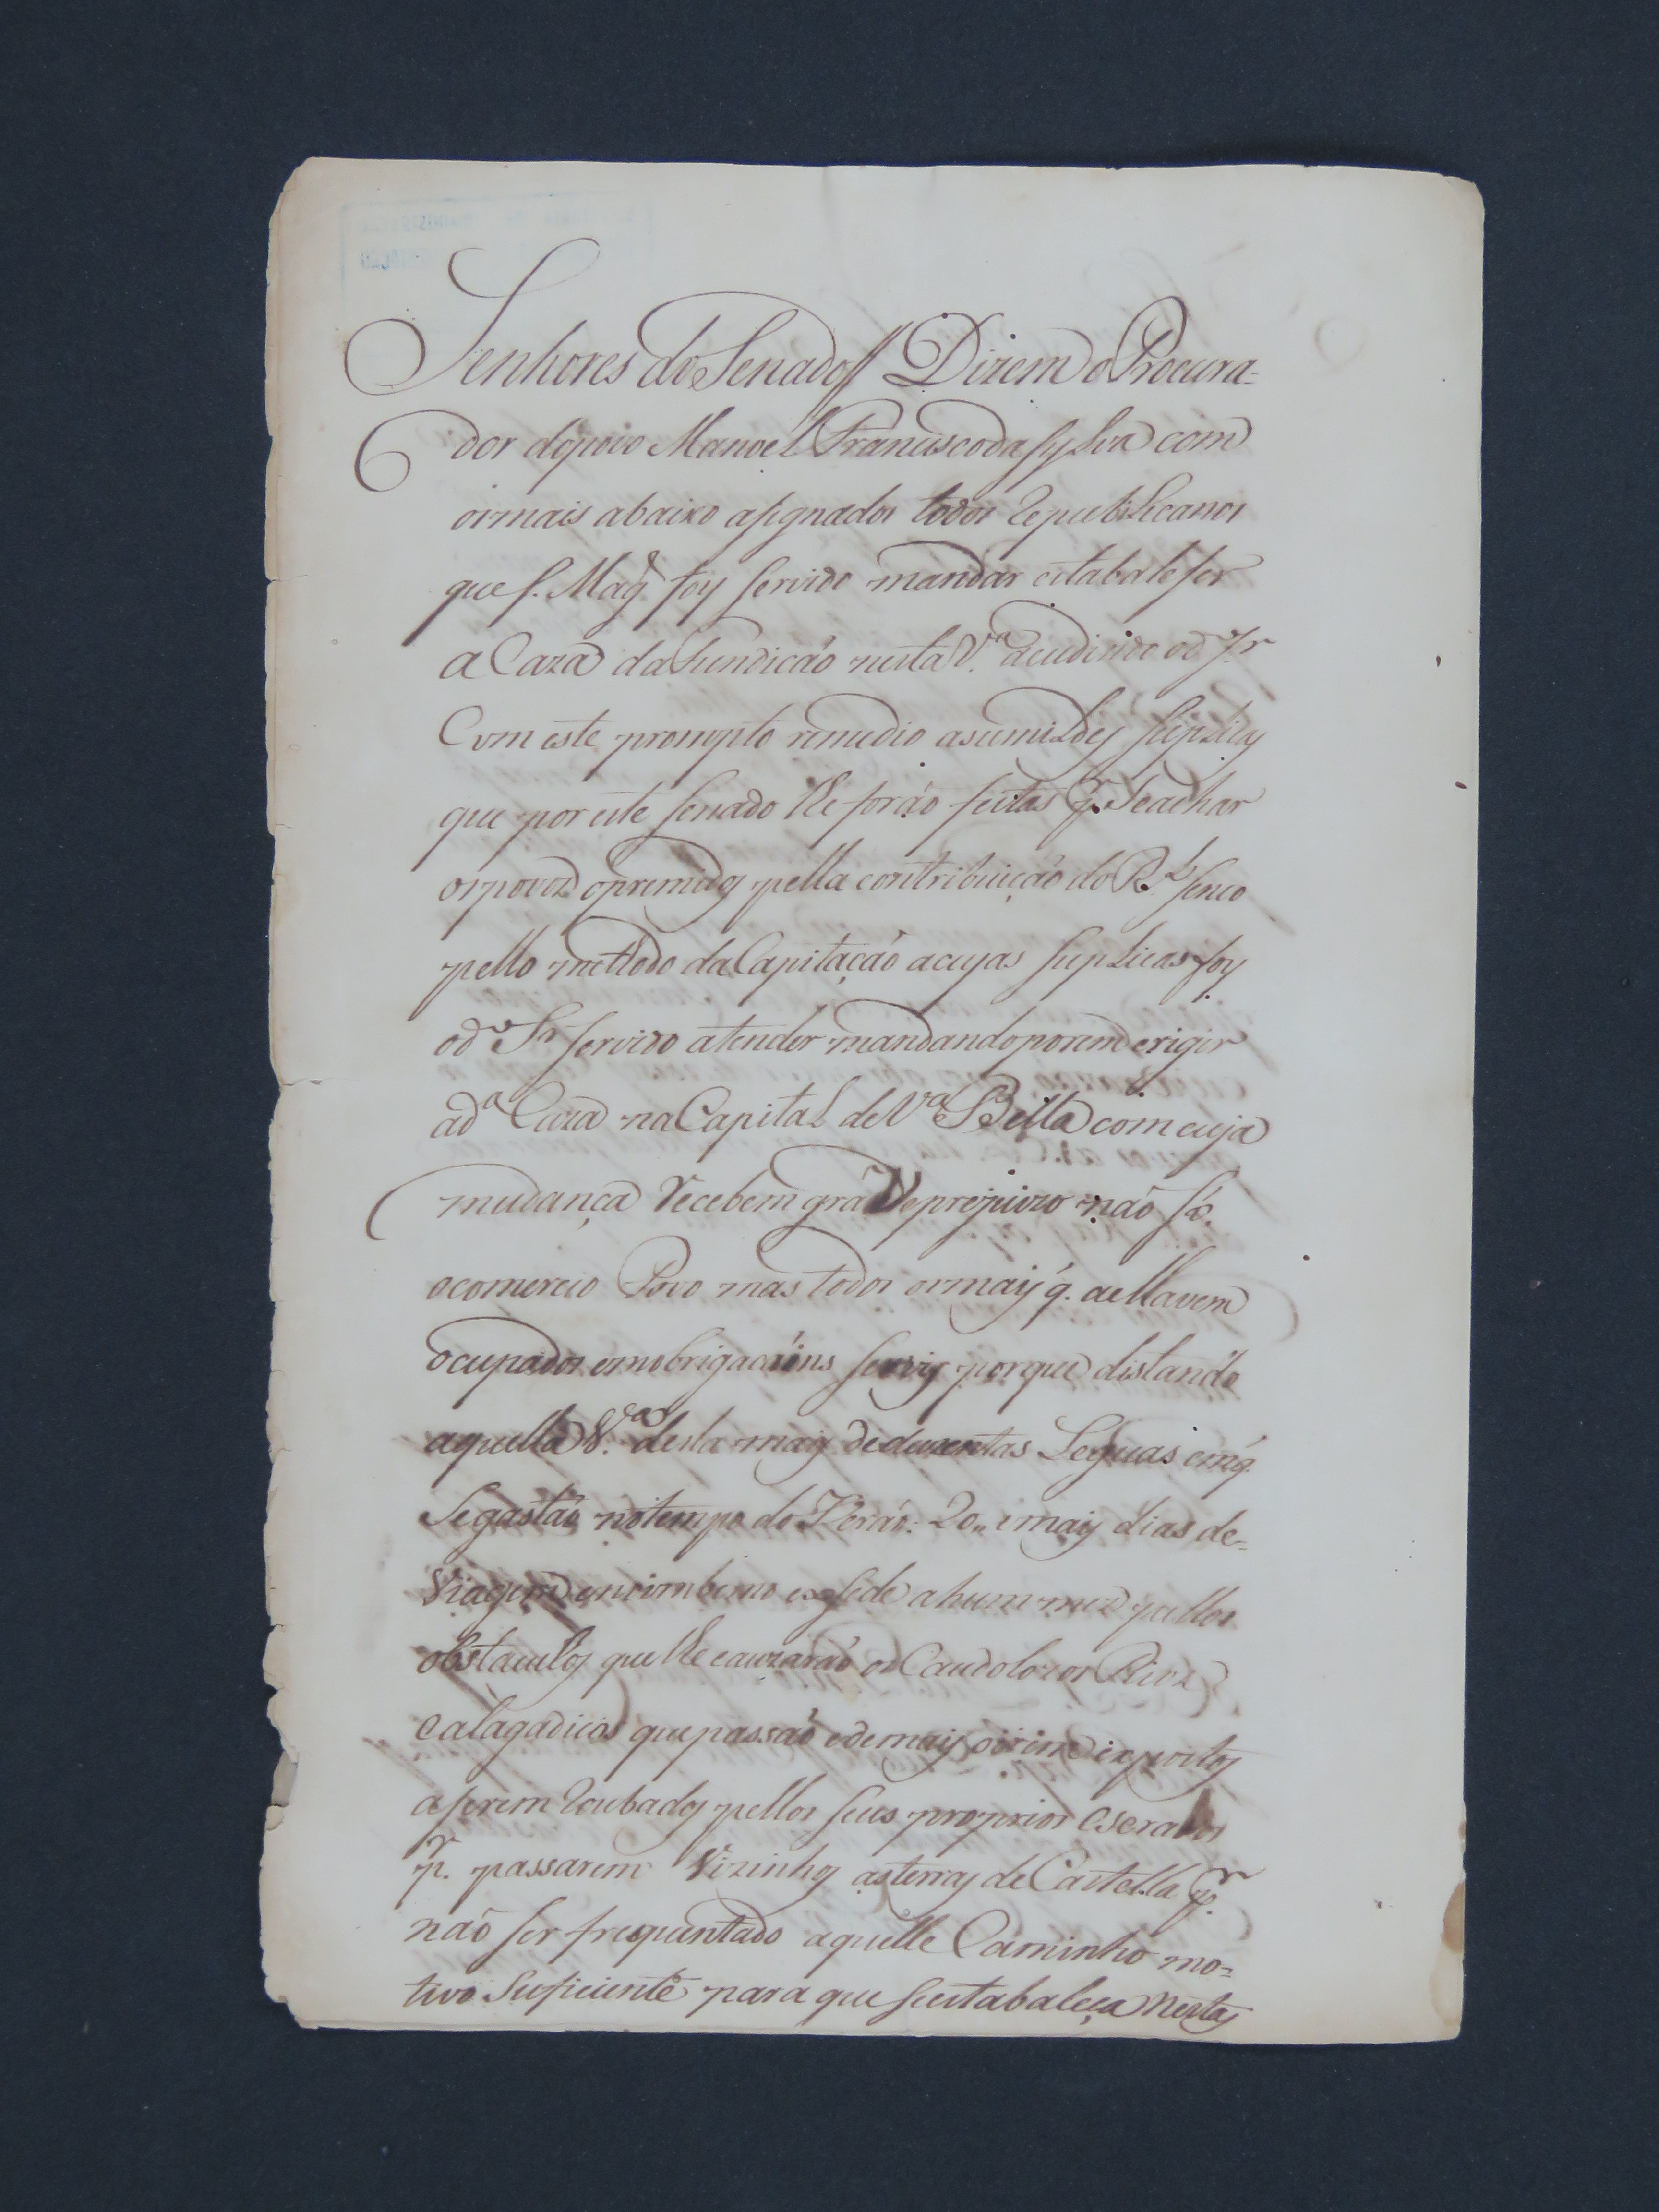 Senhores do Senado// Dizem o Procura=
dor dopovo Manoel Francisco da Sylva com
os mais abaixo asignados todos Republicanos
que S. Magᵉ foy servido mandar estabaleser
a Caza da Fundicaõ nesta Vᵃ acudindo od Sʳ
Com este prompto remedio asumildes suplicas
que por este senado lhe foraõ feitas pʳ Se achar
os povos oprimidos pella contribuiçaõ do Rˡ senco
pello methodo da Capitaçaõ acujas suplicas foy
odº Sʳ servido atender mandando porem erigir
adᵃ Caza na Capital de Vᵃ Bella com cuja
mudança recebem grande prejuizo naõ só
o comercio Povo mas todos os mais q. aella vem
ocupados em obrigacoins servis porque distando
aquella Vᵃ desta mais de duzentas Leguas emq.
Se gastaõ no tempo do Veraõ: 20,, e mais dias de=
Viagem enoimberno exsede a hum mez pellos
obstaculos que lhe cauzaraõ os Caudolozos Rios
e alagadicos que passaõ e demais oirim expostos
a serem roubados pellos seus proprios escravos
pʳ. passarem Vizinhos as terras de Castella pʳ.
naõ ser frequentado aquelle Caminho mo=
tivo Suficiente para que se estabaleça nestas